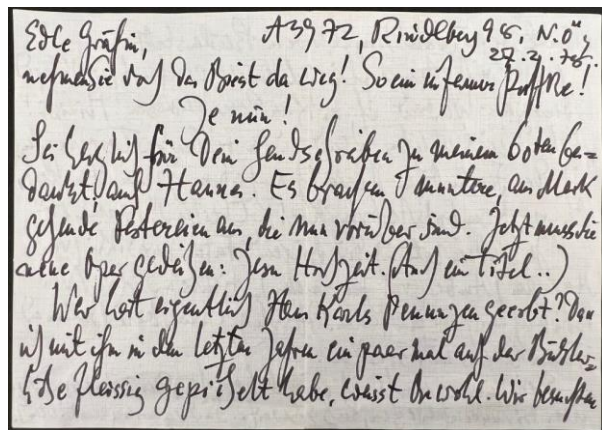 Edle Gräfin, A3972, Rindlberg 98, N.Ö.,
27.2.78.
nehmen Sie doch das Biest da weg! So ein infamer !
Je nun!
Sei herzlich für Dein Handschreiben zu meinem 60ten be-
dankt, auch Hannes. Es brachen muntere, ans Mark
gehende Festereien aus, die nun vorüber sind. Jetzt muss die
neue Oper gedeihen: Jesu Hochzeit. (Auch ein Titel..)
Wer hat eigentlich Hans Karls Penunzen geerbt? Dass
ich mit ihm in den letzten Jahren ein paar mal auf der
fleissig gepichelt habe, weisst Du wohl. Wir besuchten